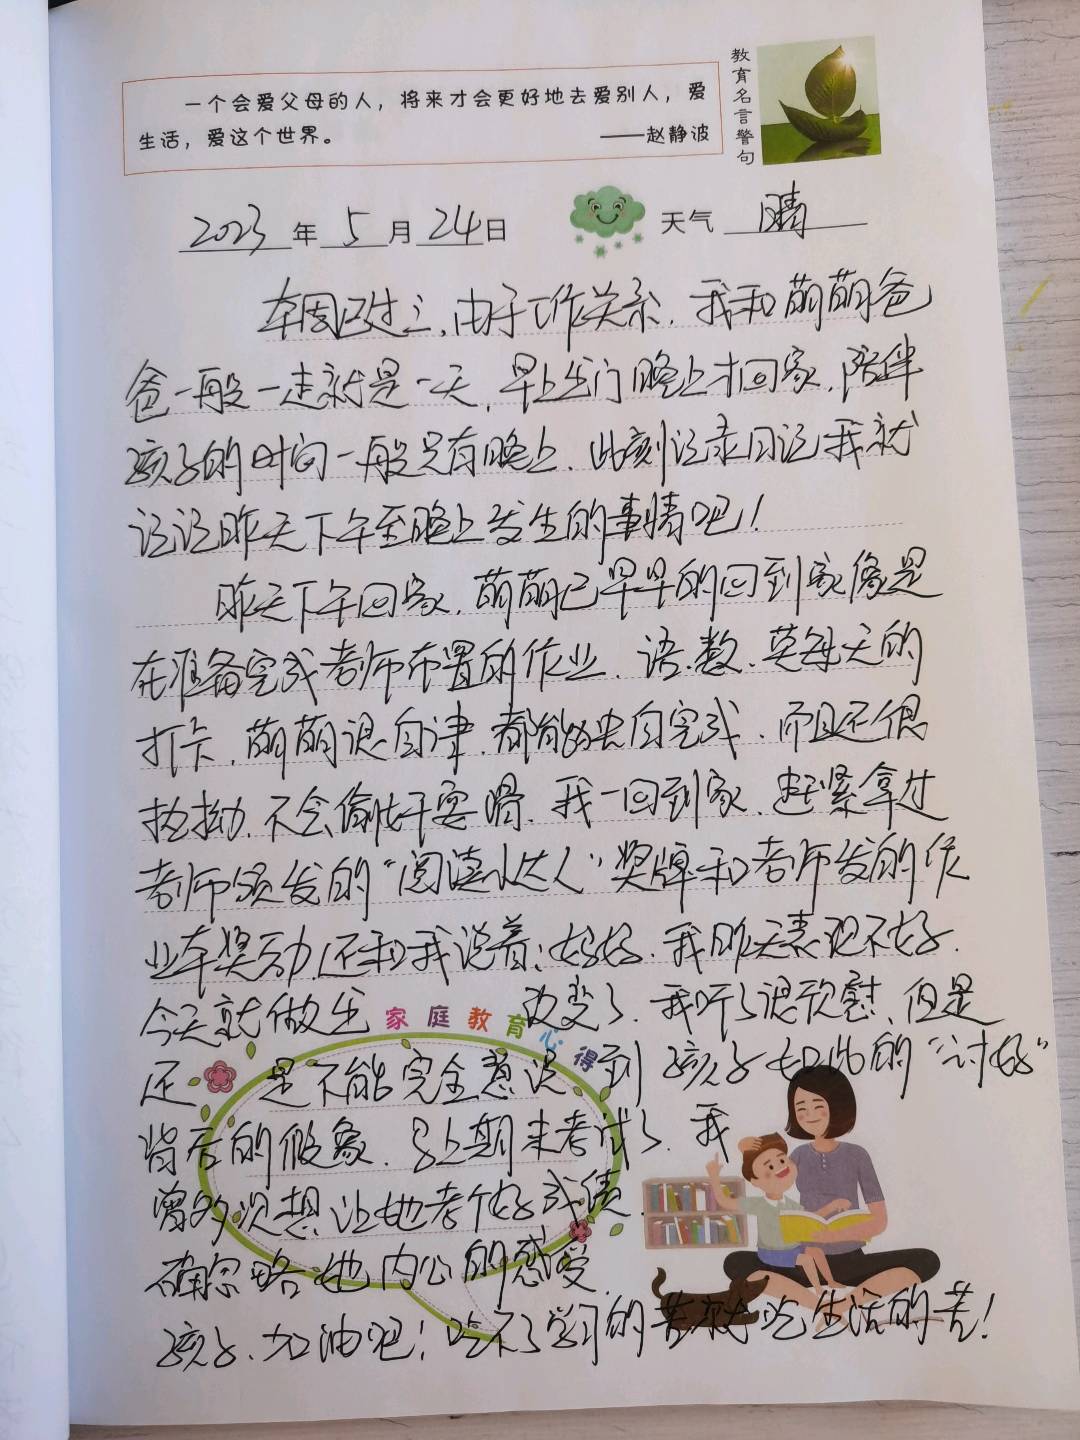 一个会爱父母的人，将来才会更好地去爱别人，爱
生活，爱这个世界。 ——赵静波
教育名言警句
2023年5月24日 天气 晴
本周已过三，由于工作关系，我和萌萌爸
爸一般一走就是一天，早上出门晚上才回家，陪伴
孩子的时间一般只有晚上，此刻记录日记我就
记记昨天下午至晚上发生的事情吧！
昨天下午回家，萌萌已早早的回到家像是
在准备完成老师布置的作业，语、数、英每天的
打卡，萌萌很自律，都能独自完成，而且不很
执拗，不会偷奸耍滑，我一回到家，赶紧拿过
老师颁发的“阅读小达人”奖牌和老师发的作
业本奖励，还和我说着：妈妈，我昨天表现不好，
今天就做出 改变了，我听了很欣慰，但是
还是不能完全意识到孩子如此的“讨好”
背后的假象，马上期末考试了，我
曾多次想让她考个好成绩，
确忽略她内心的感受，
孩子，加油吧！吃不了学习的苦就吃生活的苦！
家庭教育心得